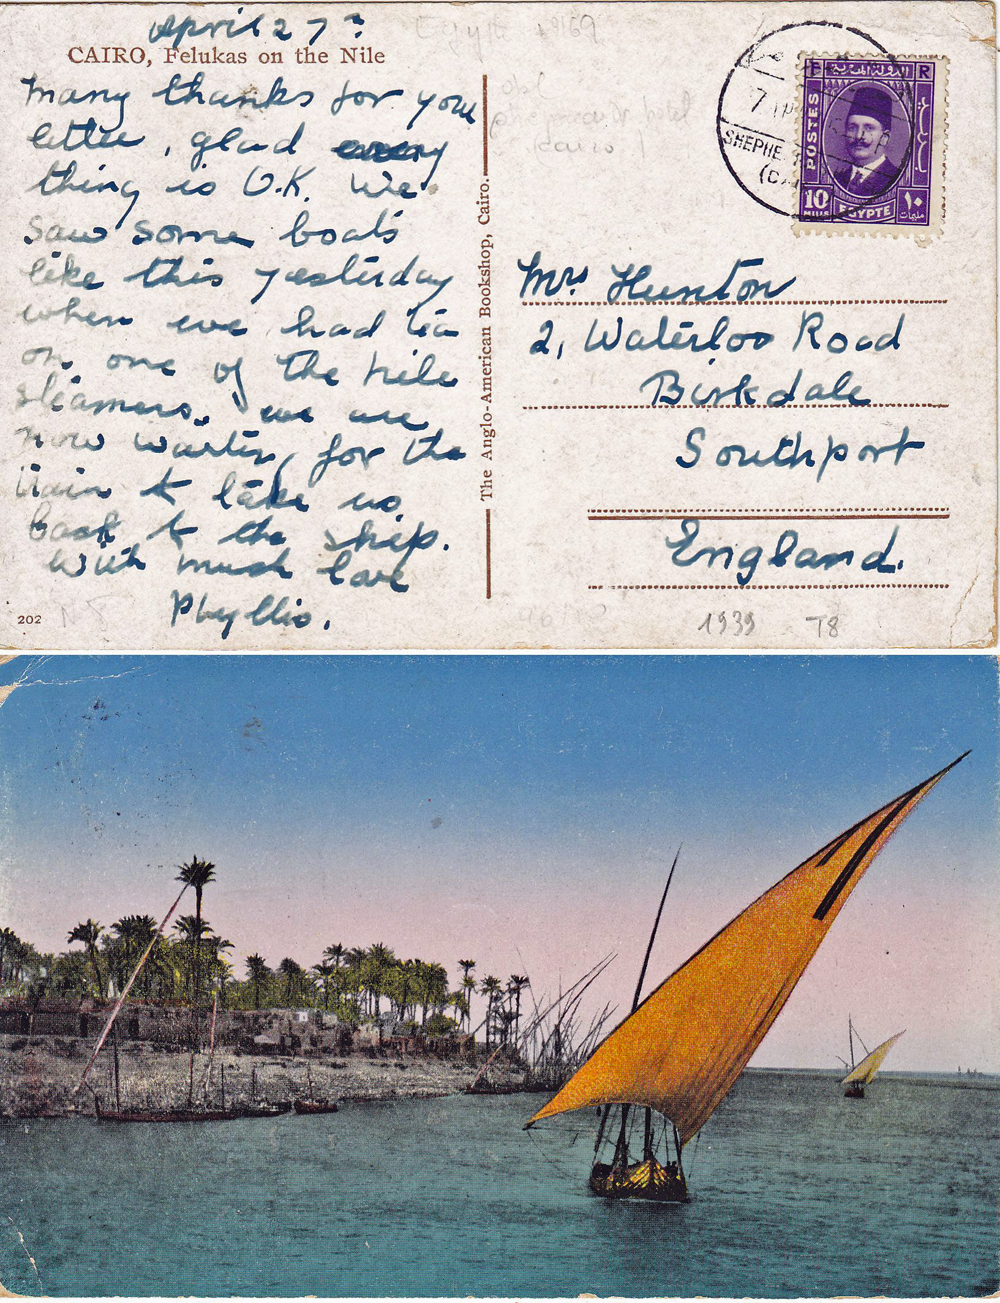 April 27th
CAIRO, Felukas on the Nile
Many thanks for your
letter, glad every
thing is O.K. We
saw some boats
like this yesterday
when we had tea
on one of the Nile
steamers. We are
now waiting for the
train to take us
back to the ship.
With much love
Phyllis.
202
The Anglo-American Bookshop, Cairo.
Egypt
hotel
(Cairo)
SHEPHE
7
الدولة المصرية
F R
POSTES
10
MILLS
EGYPTE
١٠
مليمات
Mrs Hunton
2, Waterloo Road
Birkdale
Southport
England.
1939 T8